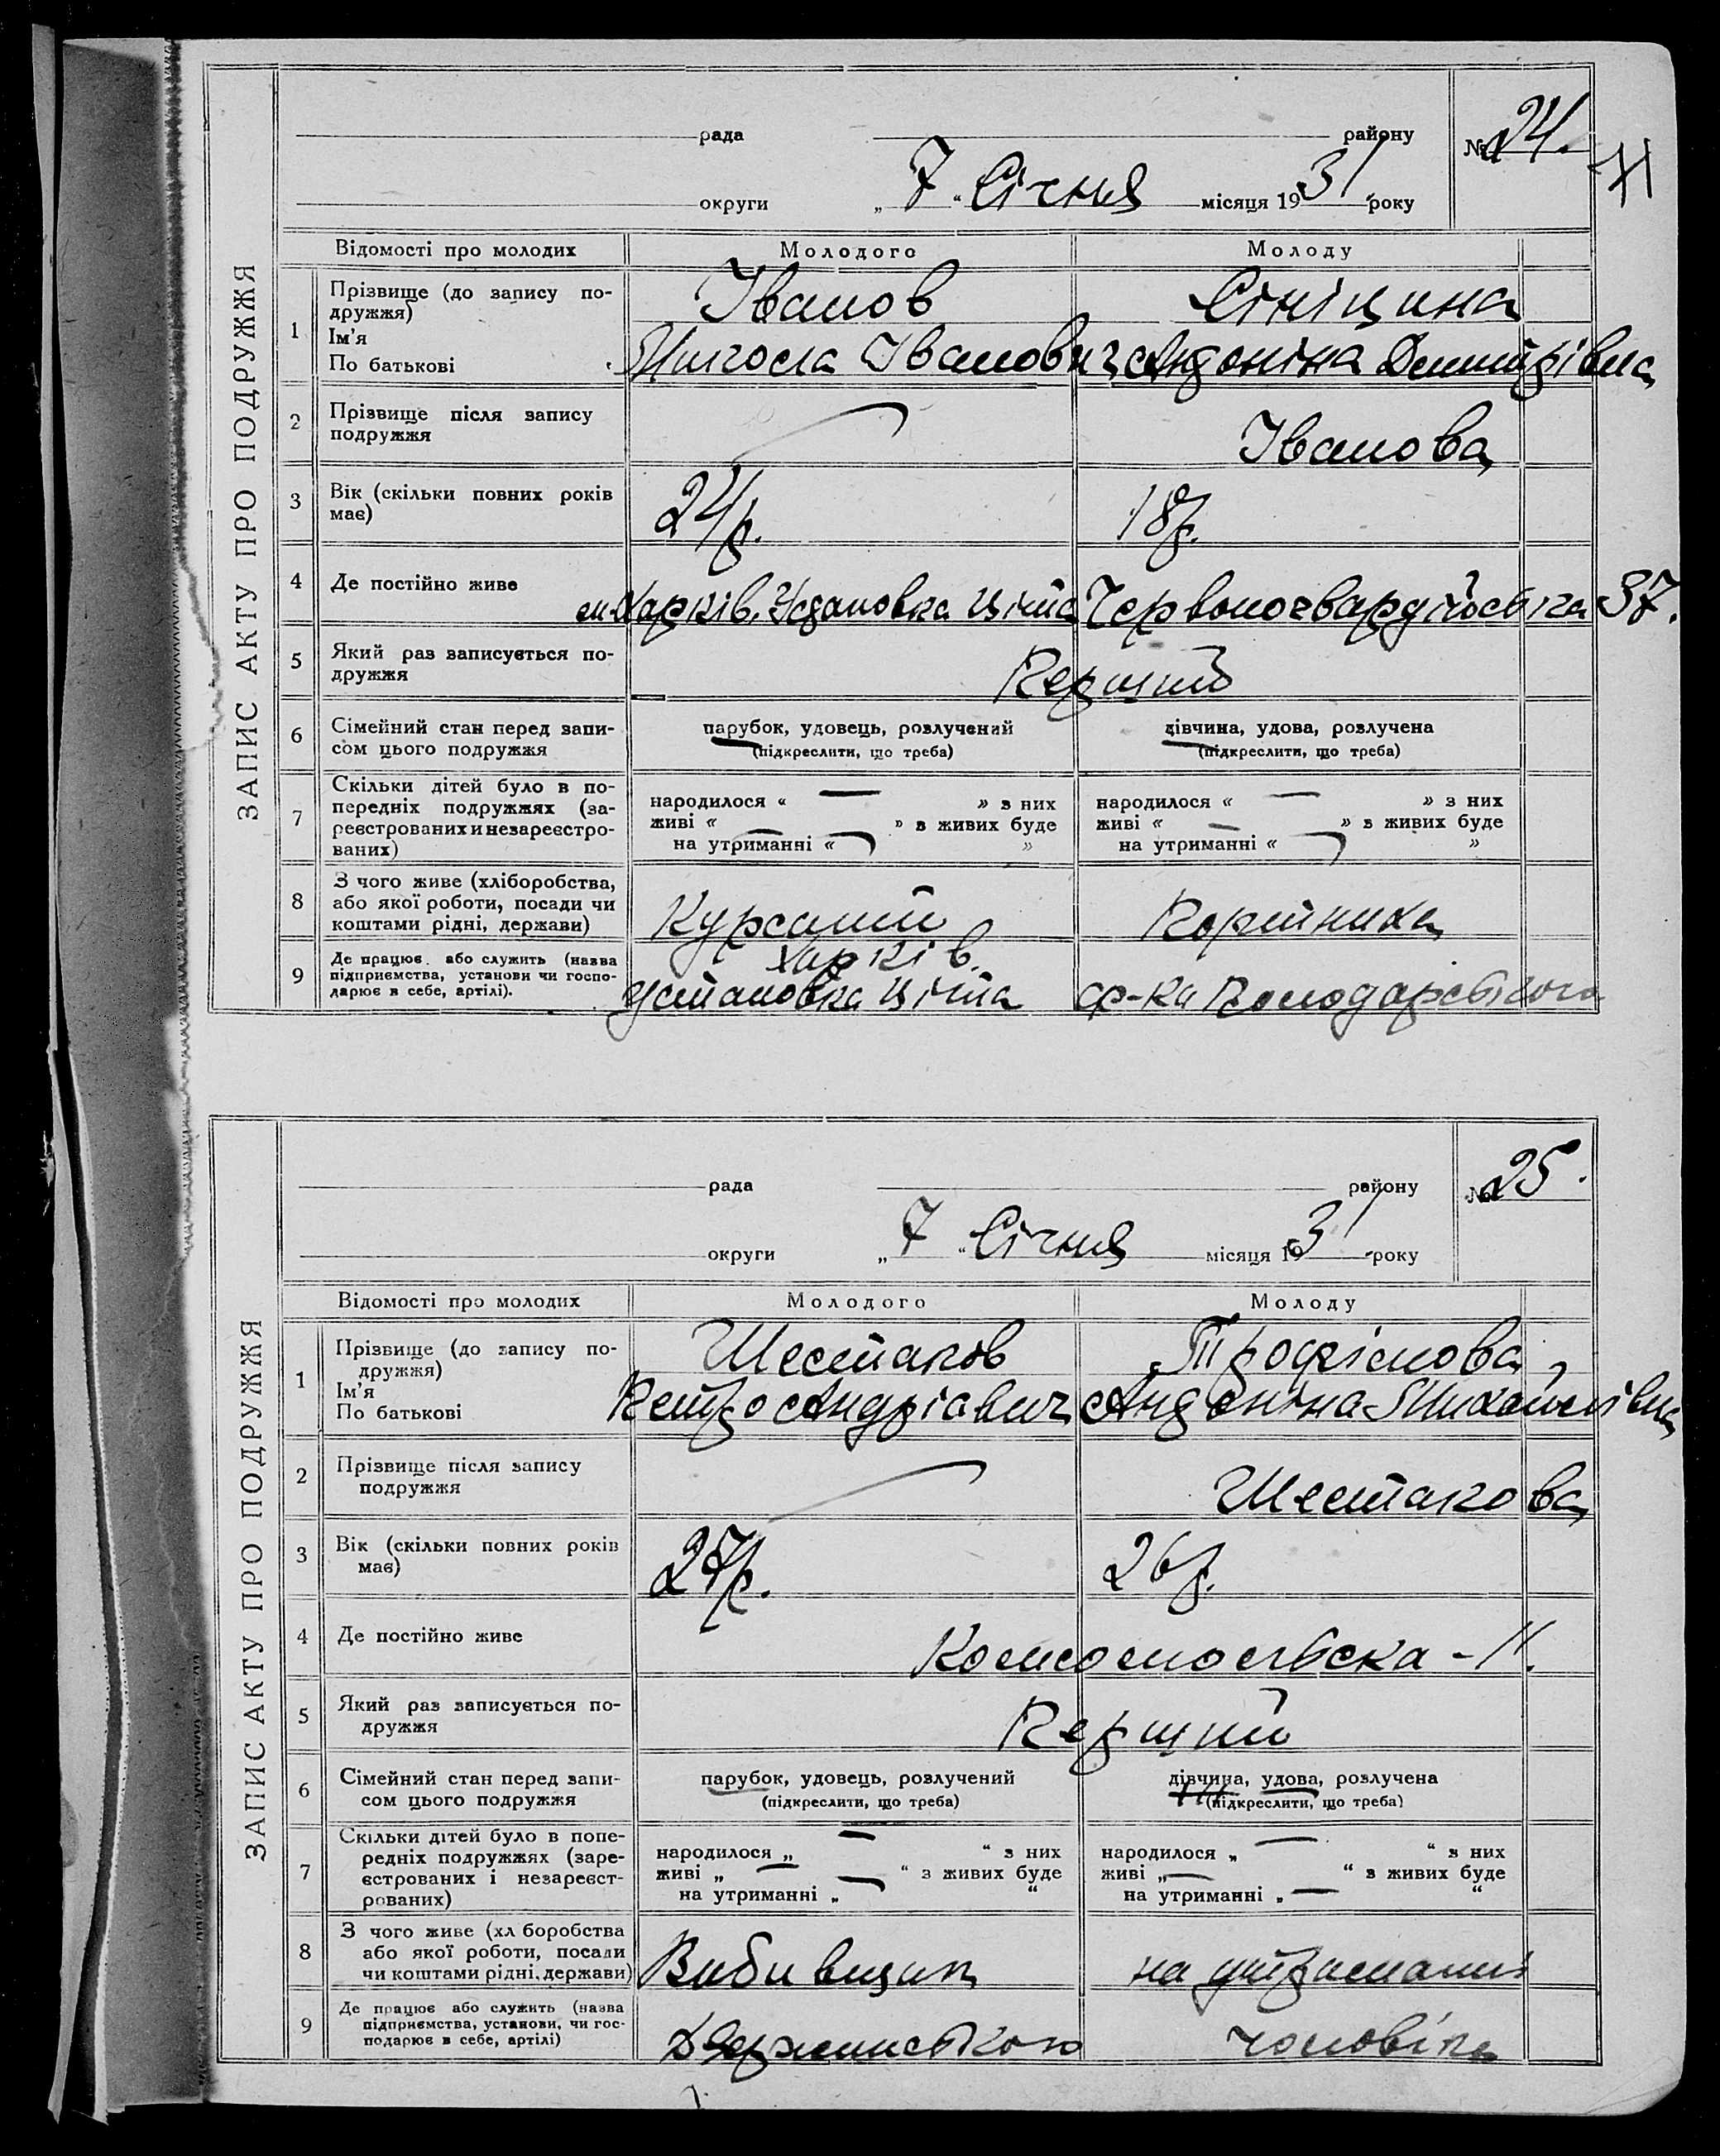 ЗАПИС АКТУ ПРО ПОДРУЖЖЯ
рада району № 24. 71
округи „ 7 “ Січня місяця 1931 року
Відомості про молодих Молодого Молоду
1 Прізвище (до запису по- Іванов Сініцина
дружжя)
Ім'я
По батькові Микола Іванович Андоніна Дмитрівна
2 Прізвище після запису
подружжя Іванова
3 Вік (скільки повних років 24 р. 18 р.
має)
4 Де постійно живе м. Харків, Установка Червоногвардійська 37.
5 Який раз записується по-
дружжя Перший
6 Сімейний стан перед запи- парубок, удовець, розлучений дівчина, удова, розлучена
сом цього подружжя (підкреслити, що треба) (підкреслити, що треба)
7 Скільки дітей було в по-
передніх подружжях (за- народилося « — » з них народилося « — » з них
реєстрованих и незареєстро- живі « — » з живих буде живі « — » з живих буде
ваних) на утриманні « — » на утриманні « — »
8 З чого живе (хліборобства,
або якої роботи, посади чи Курсант Портниха
коштами рідні, держави)
9 Де працює або служить (назва Харків.
підприємства, установи чи госпо- Установка ф-ка Володарського
дарює в себе, артілі).
ЗАПИС АКТУ ПРО ПОДРУЖЖЯ
рада району № 25.
округи „ 7 “ Січня місяця 1931 року
Відомості про молодих Молодого Молоду
1 Прізвище (до запису по- Шестаков Трофімова
дружжя)
Ім'я Петро Андріавич Андоніна Михайлівна
По батькові
2 Прізвище після запису
подружжя Шестакова
3 Вік (скільки повних років 27 р. 26 р.
має)
4 Де постійно живе Комсомольська - 11.
5 Який раз записується по-
дружжя Перший
6 Сімейний стан перед запи- парубок, удовець, розлучений дівчина, удова, розлучена
сом цього подружжя (підкреслити, що треба) (підкреслити, що треба)
7 Скільки дітей було в попе-
редніх подружжях (заре- народилося „ — “ з них народилося „ — “ з них
єстрованих і незареєст- живі „ — “ з живих буде живі „ — “ з живих буде
рованих) на утриманні „ — “ на утриманні „ — “
8 З чого живе (хл боробства
або якої роботи, посади Вибивщик на утриманні
чи коштами рідні, держави)
9 Де працює або служить (назва
підприємства, установи, чи гос- Дзержинського чоловіка
подарює в себе, артілі)